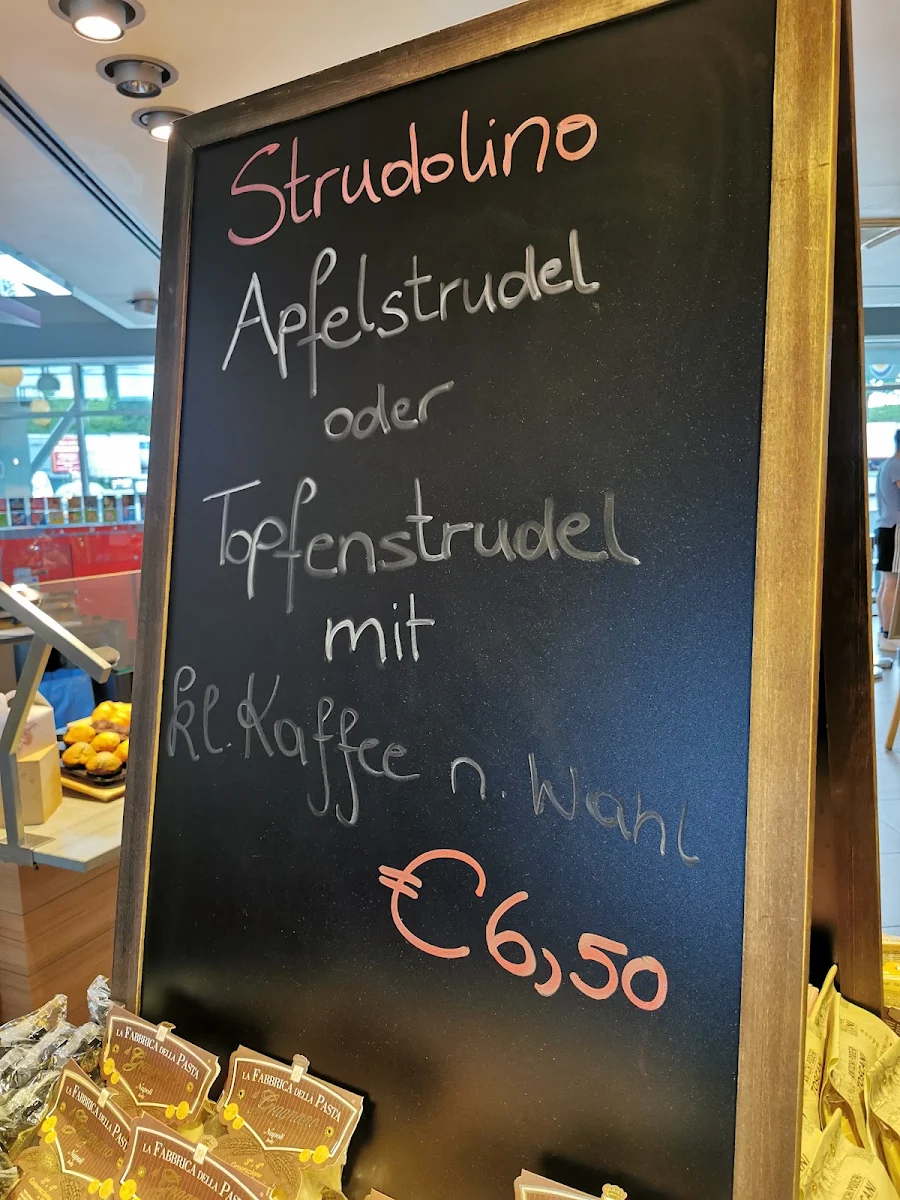 Strudolino
Apfelstrudel
oder
Topfenstrudel
mit
kl. Kaffee n. Wahl
€6,50
LA FABBRICA DELLA PASTA
Napoli
LA FABBRICA DELLA PASTA
Napoli
LA FABBRICA DELLA PASTA
LA FABBRICA DELLA PASTA